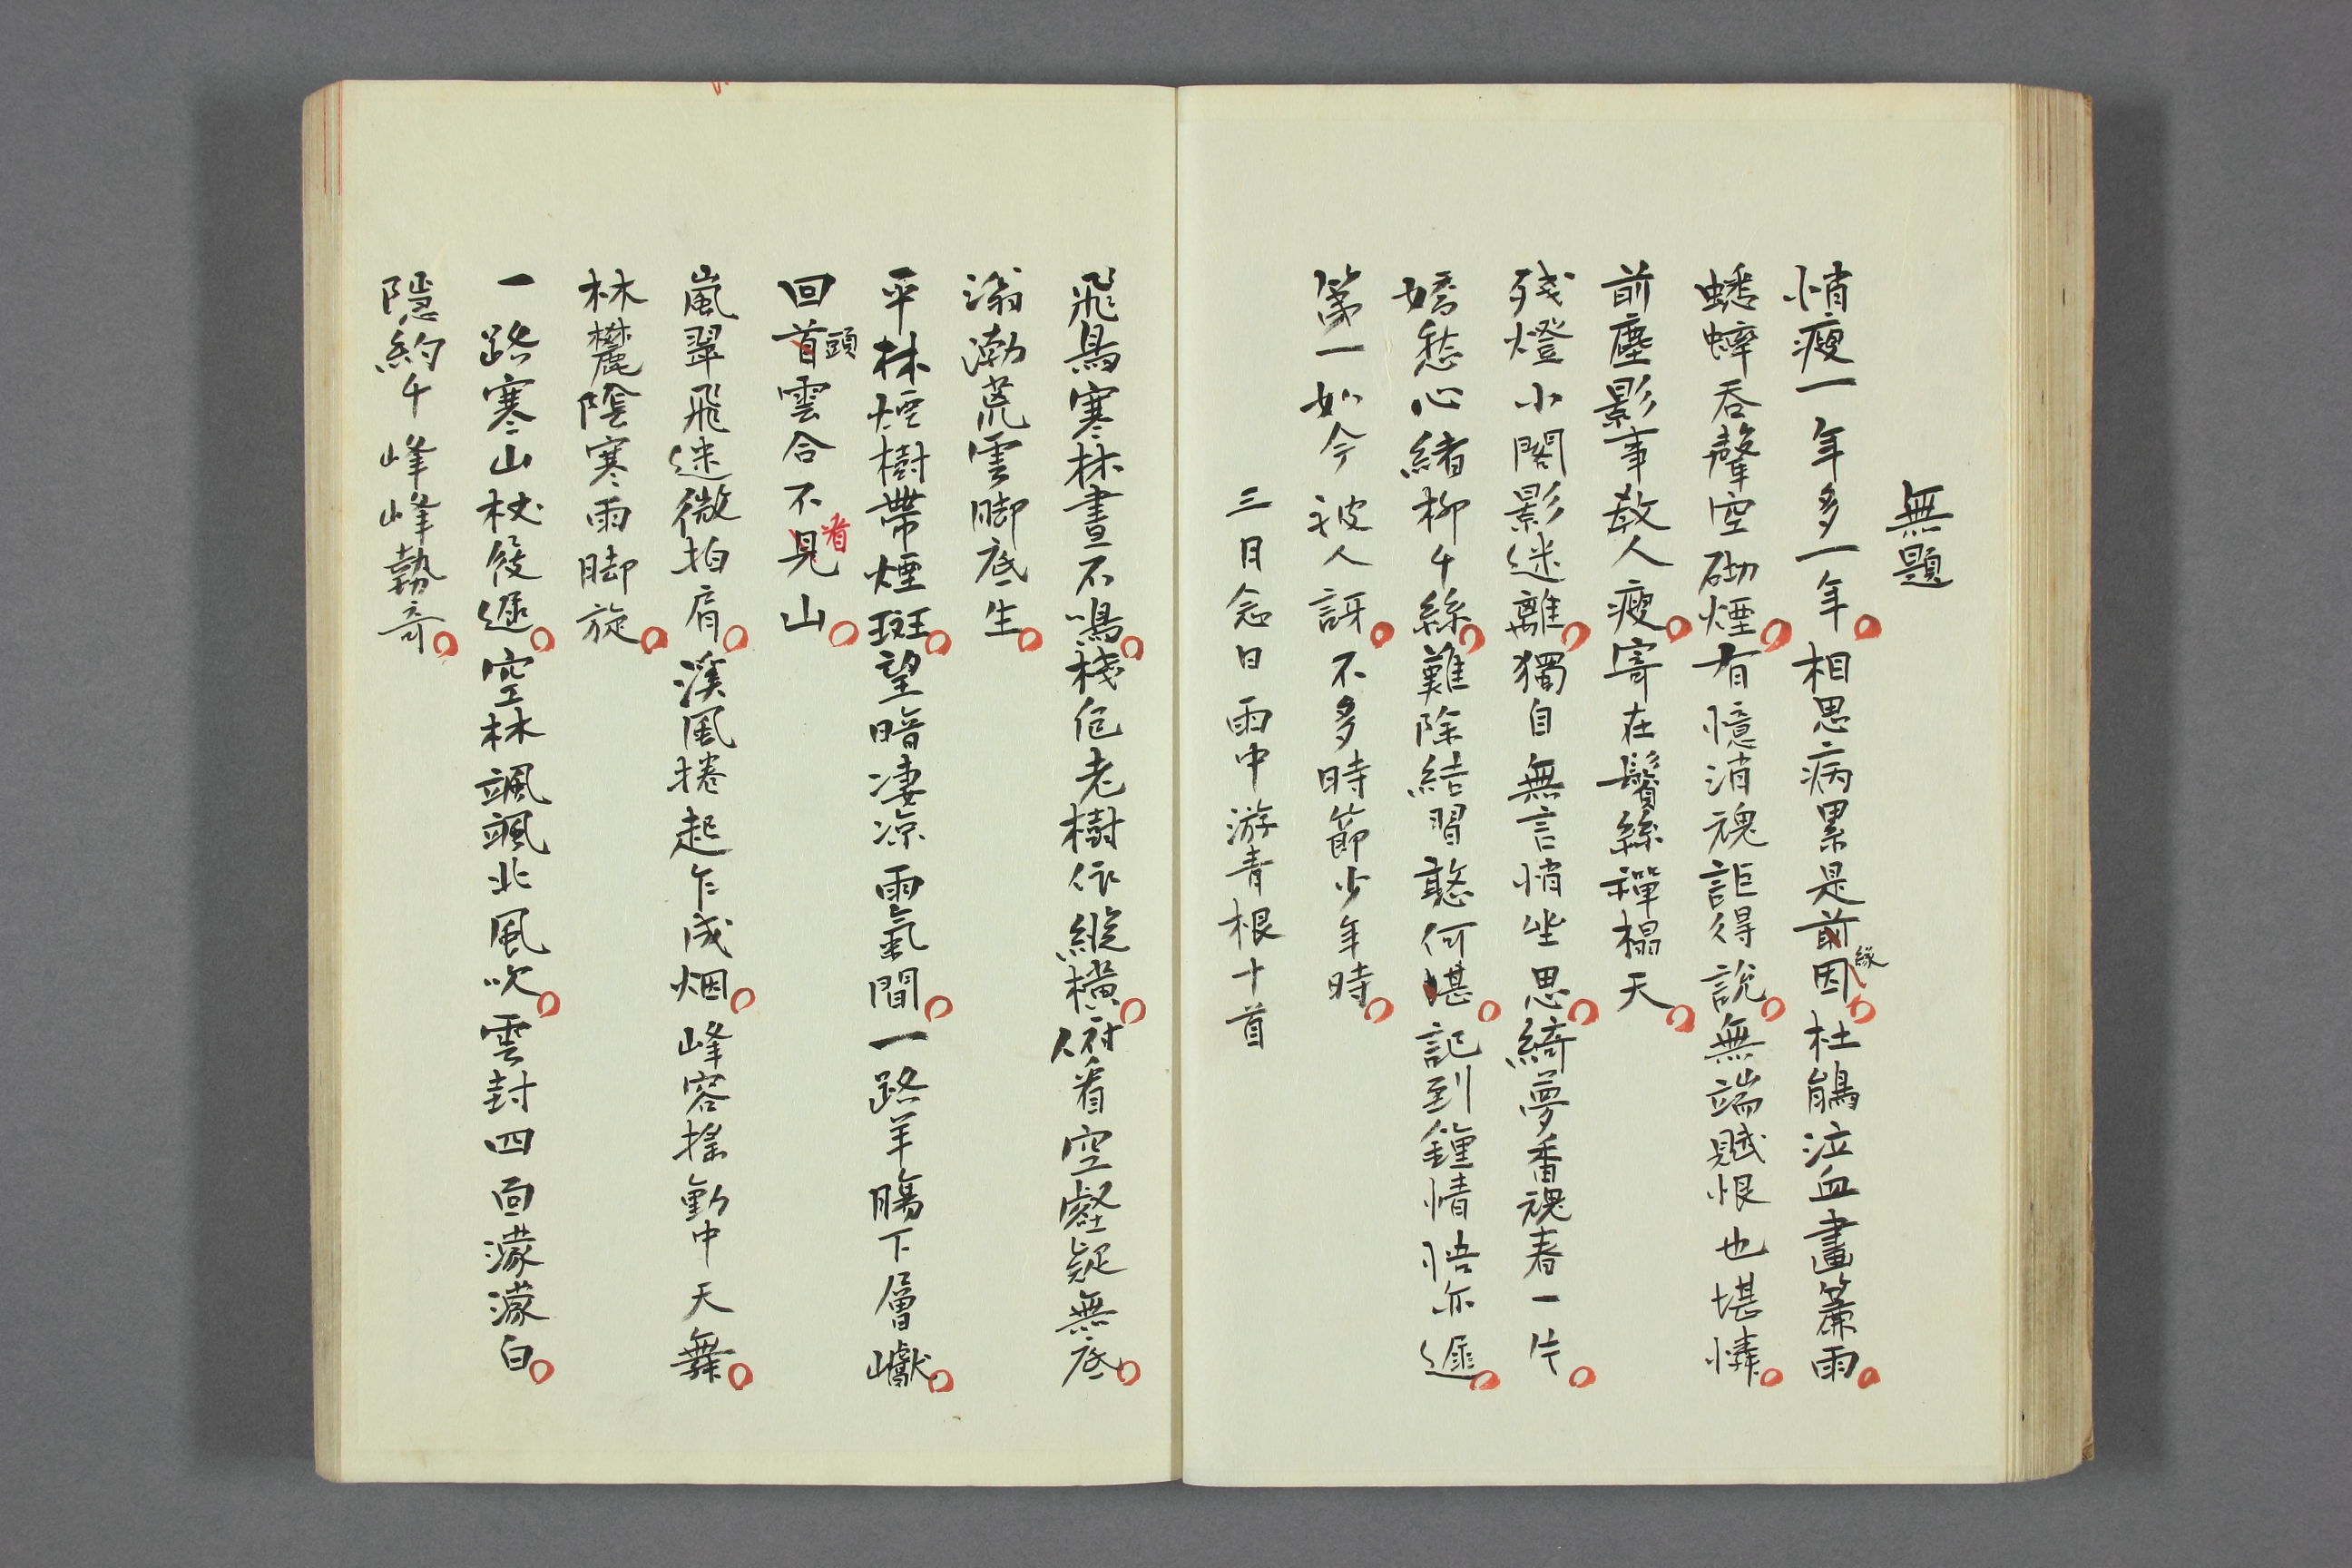 無題
悄瘦一年多一年相思病累是前因緣杜鵑泣血畫簾雨
蟋蟀吞聲空砌煙有憶消魂詎得說無端賦恨也堪憐
前塵影事教人瘦寄在鬢絲禪榻天
殘燈小閣影迷離獨自無言悄坐思綺夢番魂春一片
嬌愁心緒柳千絲難除結習憨何堪記到鍾情悟亦遲
第一如今被人訝不多時節少年時
三月念日雨中游青根十首
飛鳥寒林晝不鳴棧危老樹依縱橫俯看空壑疑無底
滃渤荒雲脚底生
平林煙樹帶煙斑望暗凄凉雨氣間一路羊腸下層巘
回首頭雲合不見看山
嵐翠飛迷微拍肩溪風捲起乍成烟峰容搖動中天舞
林麓陰寒雨脚旋
一路寒山杖後遲空林颯颯北風吹雲封四面濛濛白
隱約千峰峰勢奇